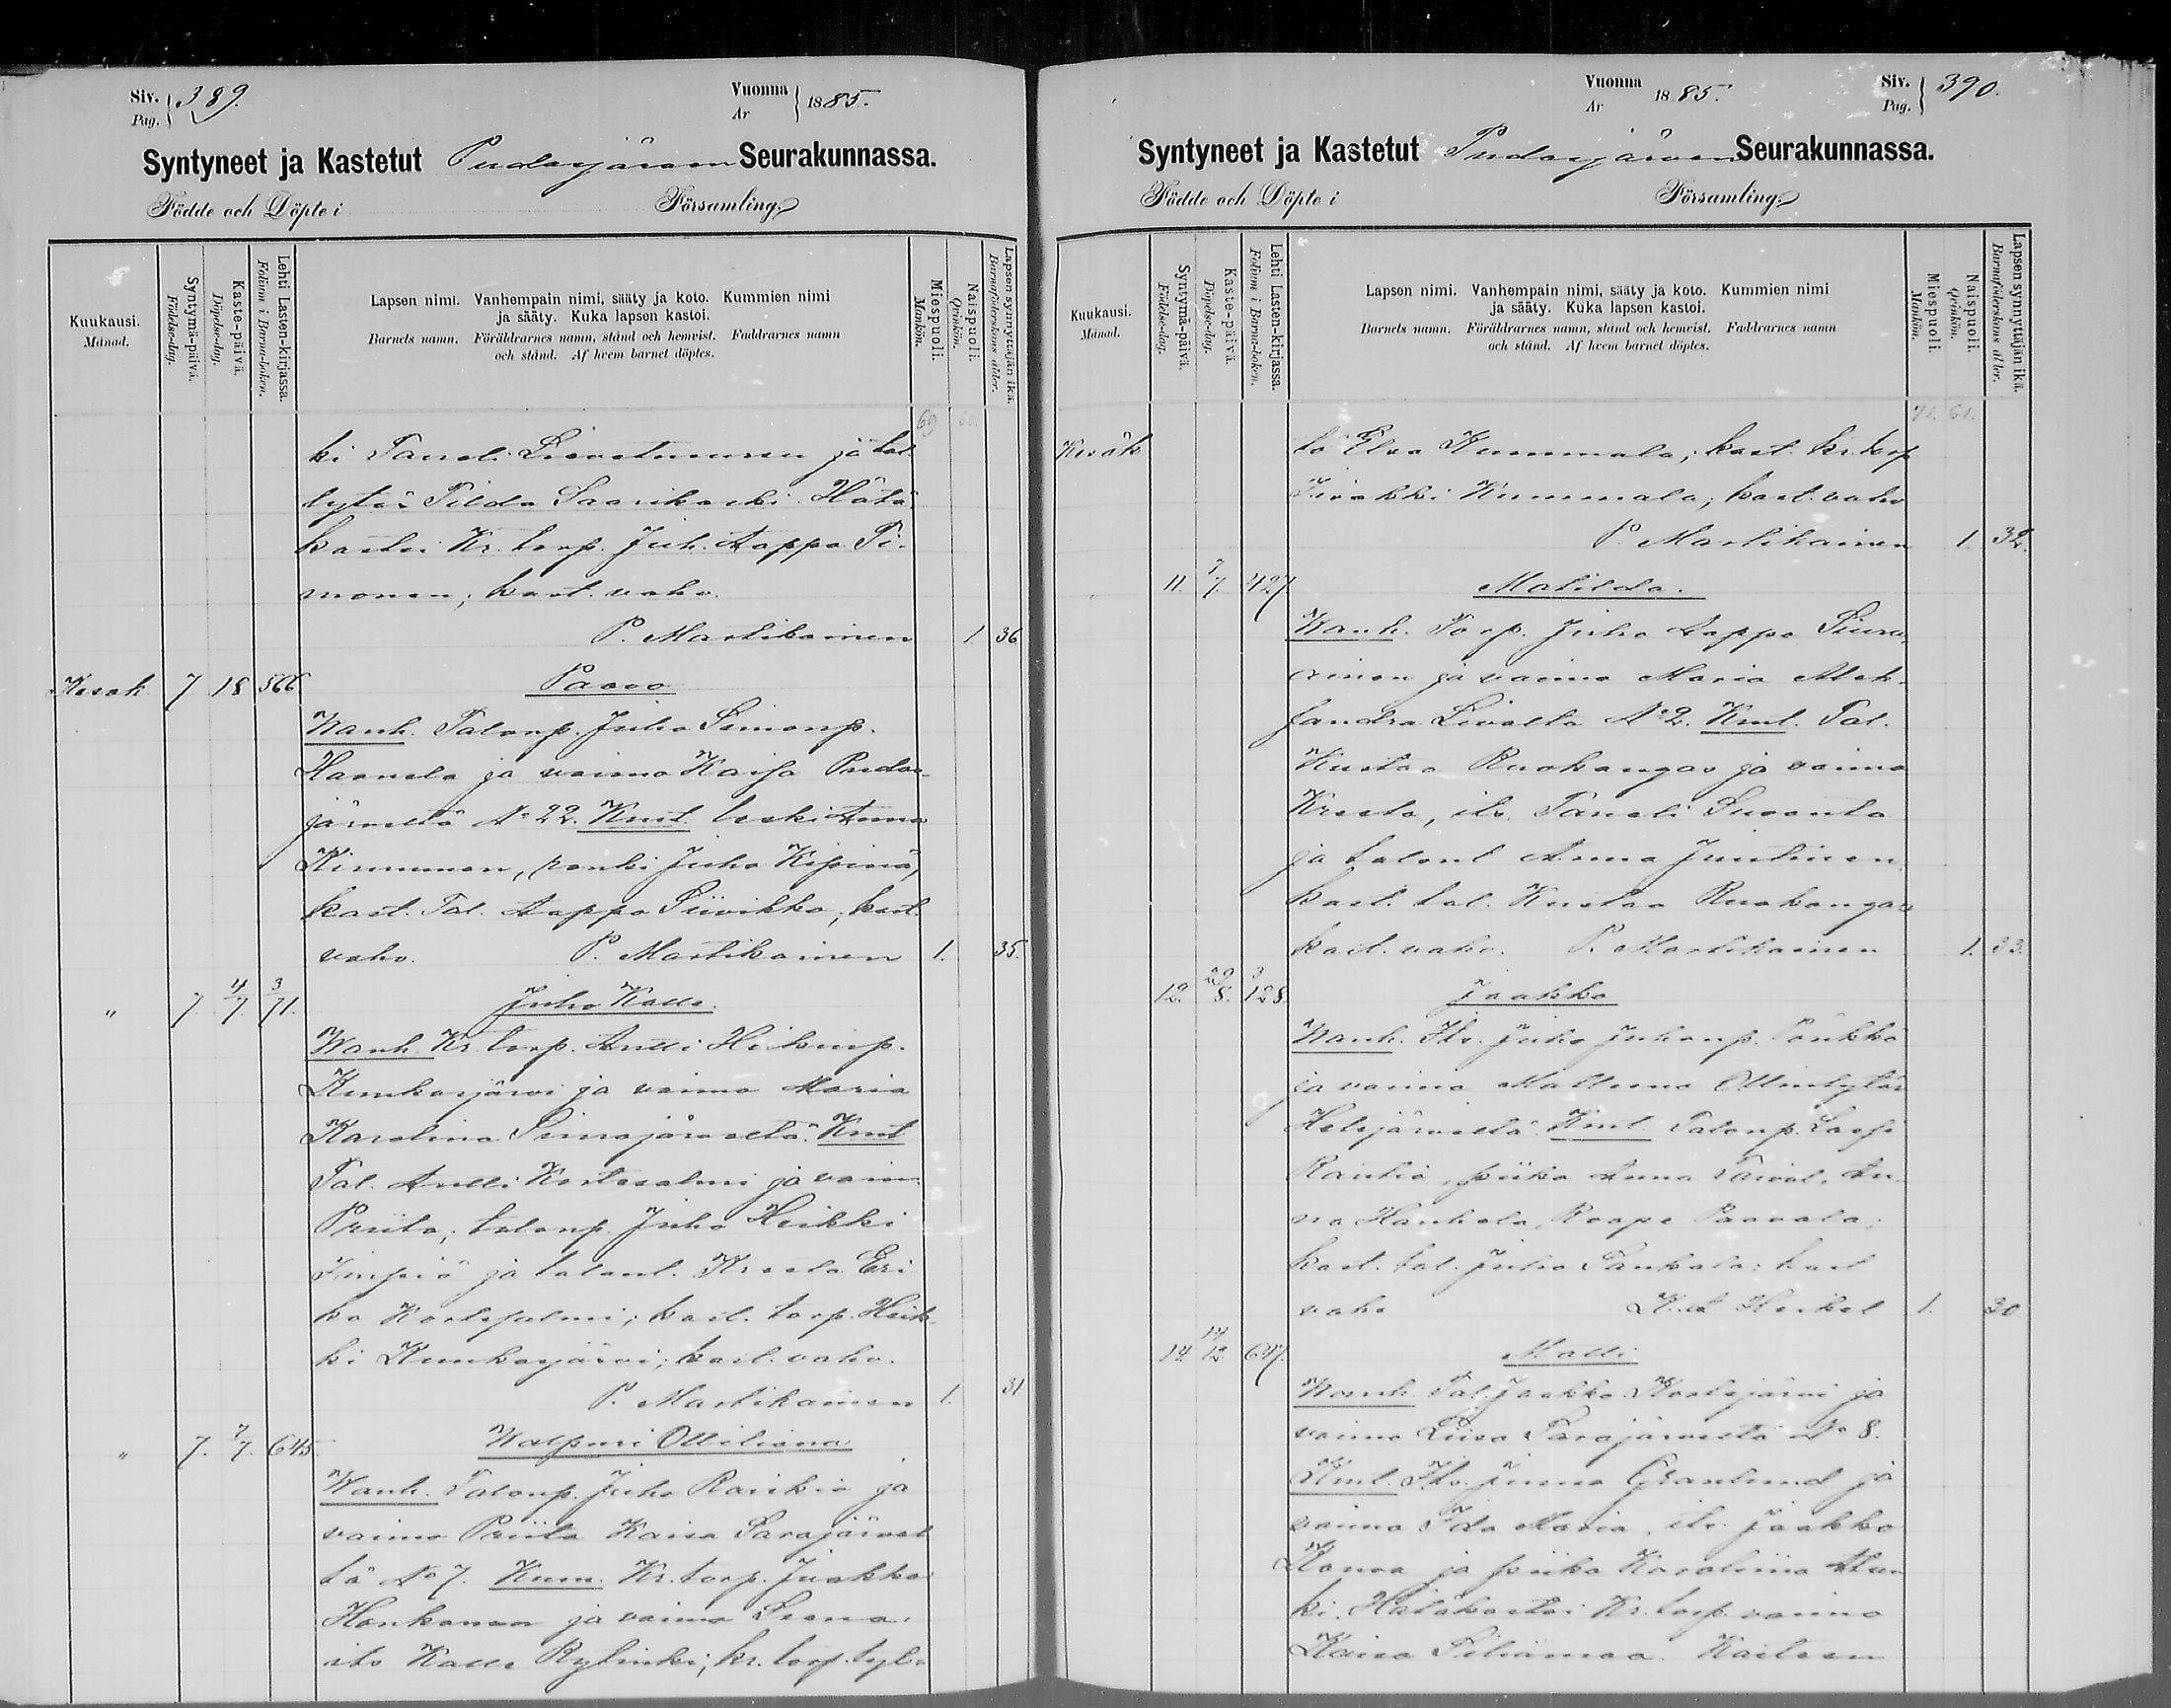 Siv. Pag. 389.
Vuonna År 1885.
Syntyneet ja Kastetut Pudasjärven Seurakunnassa.
Födde och Döpte i Församling
Kuukausi. Månad.
Syntymä-päivä. Födelse-dag.
Kaste-päivä. Döpelse-dag.
Lehti Lasten-kirjassa. Folium i Barna-boken.
Lapsen nimi. Vanhempain nimi, sääty ja koto. Kummien nimi
ja sääty. Kuka lapsen kastoi.
Barnets namn. Föräldrarnes namn, stånd och hemvist. Faddrarnes namn
och stånd. Af hvem barnet döptes.
Miespuoli. Mankön.
Naispuoli. Qvinkön.
Lapsen synnyttäjän ikä. Barnaföderskans ålder.
69 60.
ki Taneli Lievetunen ja tal
tytär Tilda Saarikoski. Hätä-
kastoi Kr. torp. Juh. Aappo Ti-
monen; kast. vahv.
P. Martikainen 1. 36
Kesäk 7 18 566 Paavo
Wanh. Talonp. Juho Simonp.
Haanela ja vaimo Kaisa Pudas-
järveltä No 22. Kmt. leski Anna
Kinnunen, renki Juho Kipinä,
kast. Tal. Aappo Siivikko; kast.
vahv. P. Martikainen 1. 35.
" 7 4/7 3/71. Juho Kalle.
Wanh. Kr. torp. Antti Heikinp.
Kunkasjärvi ja vaimo Maria
Karolina Siurajärveltä. Kmt
Tal. Antti Kortesalmi ja vaim.
Priita; talonp. Juho Heikki
Jimpiö ja talont. Kreeta Eri
ka Kortesalmi; kast. torp. Heik-
ki Kunkasjärvi; kast. vahv.
P. Martikainen 1. 31
" 7. 7/7. 645. Walpuri Otteliana
Wanh. Talonp. Juho Raiskio ja
vaimo Priita Kaisa Sarajärvel
tä No 7. Kum. Kr. torp. Jaakko
Honkanen ja vaimo Leena,
its Kalle Rytinki; kr. torp. tyt-
Vuonna År 1885.
Siv. Pag. 390.
Syntyneet ja Kastetut Pudasjärven Seurakunnassa.
Födde och Döpte i Församling
Kuukausi. Månad.
Syntymä-päivä. Födelse-dag.
Kaste-päivä. Döpelse-dag.
Lehti Lasten-kirjassa. Folium i Barna-boken.
Lapsen nimi. Vanhempain nimi, sääty ja koto. Kummien nimi
ja sääty. Kuka lapsen kastoi.
Barnets namn. Föräldrarnes namn, stånd och hemvist. Faddrarnes namn
och stånd. Af hvem barnet döptes.
Miespuoli. Mankön.
Naispuoli. Qvinkön.
Lapsen synnyttäjän ikä. Barnaföderskans ålder.
71. 61.
Kesäk tö Elsa Kummala; kast. kr. torp
Iisakki Kummala; kast. vahv
P. Martikainen 1. 32.
11. 7/7. 427 Matilda.
Wanh. Torp. Juho Aappo Siura-
vinen ja vaimo Maria Alek-
sandra Livolta No 2. Kmt. Tal.
Kustaa Ruokangas ja vaimo
Kreeta, its. Taneli Suvanto
ja talont Anna Juntinen
kast. tal. Kustaa Ruokangas
kast. vahv. P. Martikainen 1. 33.
12. 29/8. 3/128 Jaakko
Wanh. Its. Juho Juhonp. Pönkkö
ja vaimo Malluna Ollintytär
Hetejärveltä. Kmt. Talonp. Lassi
Rantio, piika Anna Taival, An
na Hanhela, Roope Paavola;
kast. tal. Juho Pankala; kast
vahv K. A. Heikel 1. 30
14. 14/12. 647. Matti
Wanh. Tal. Jaakko Kortejärvi ja
vaimo Liisa Sarajärveltä No 8.
Kmt. Its. Junno Granlund ja
vaimo Ida Maria, its. Jaakko
Kanaa ja piika Karoliina
ki. Hätäkastoi Kr. torp. vaimo
Kaisa Kasteen